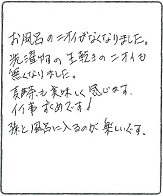 お風呂のニオイがなくなりました。
洗濯物の生乾きのニオイも
無くなりました。
真際も美味しく感じます。
イイ事ずくめです！
孫と風呂に入るのが楽しいです。